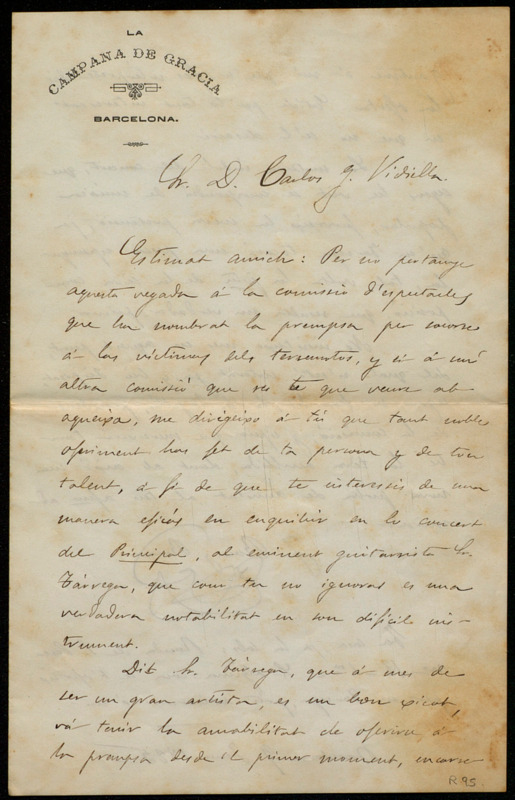 LA
CAMPANA DE GRACIA
BARCELONA.
Sr. D. Carlos G. Vidiella.
Estimat amich: Per no pertanye
aquesta vegada á la comissió d'espectacles
que ha nombrat la prempsa per socorre
á las víctimas dels terremotos, y sí á una
altra comissió que res té que veure ab
aqueixa, me dirigeixo á tú que tant noble
oferiment has fet de ta persona y de tou
talent, á fi de que te interessis de una
manera eficás en enquibir en lo concert
del Principal, al eminent guitarrista Sr.
Tárrega, que com tu no ignoras es una
verdadera notabilitat en son difícil ins-
trument.
Dit Sr. Tárrega, que á mes de
ser un gran artista, es un bon xicot,
vá tenir la amabilitat de oferirse á
la prempsa desde 'l primer moment, encare
R. 95